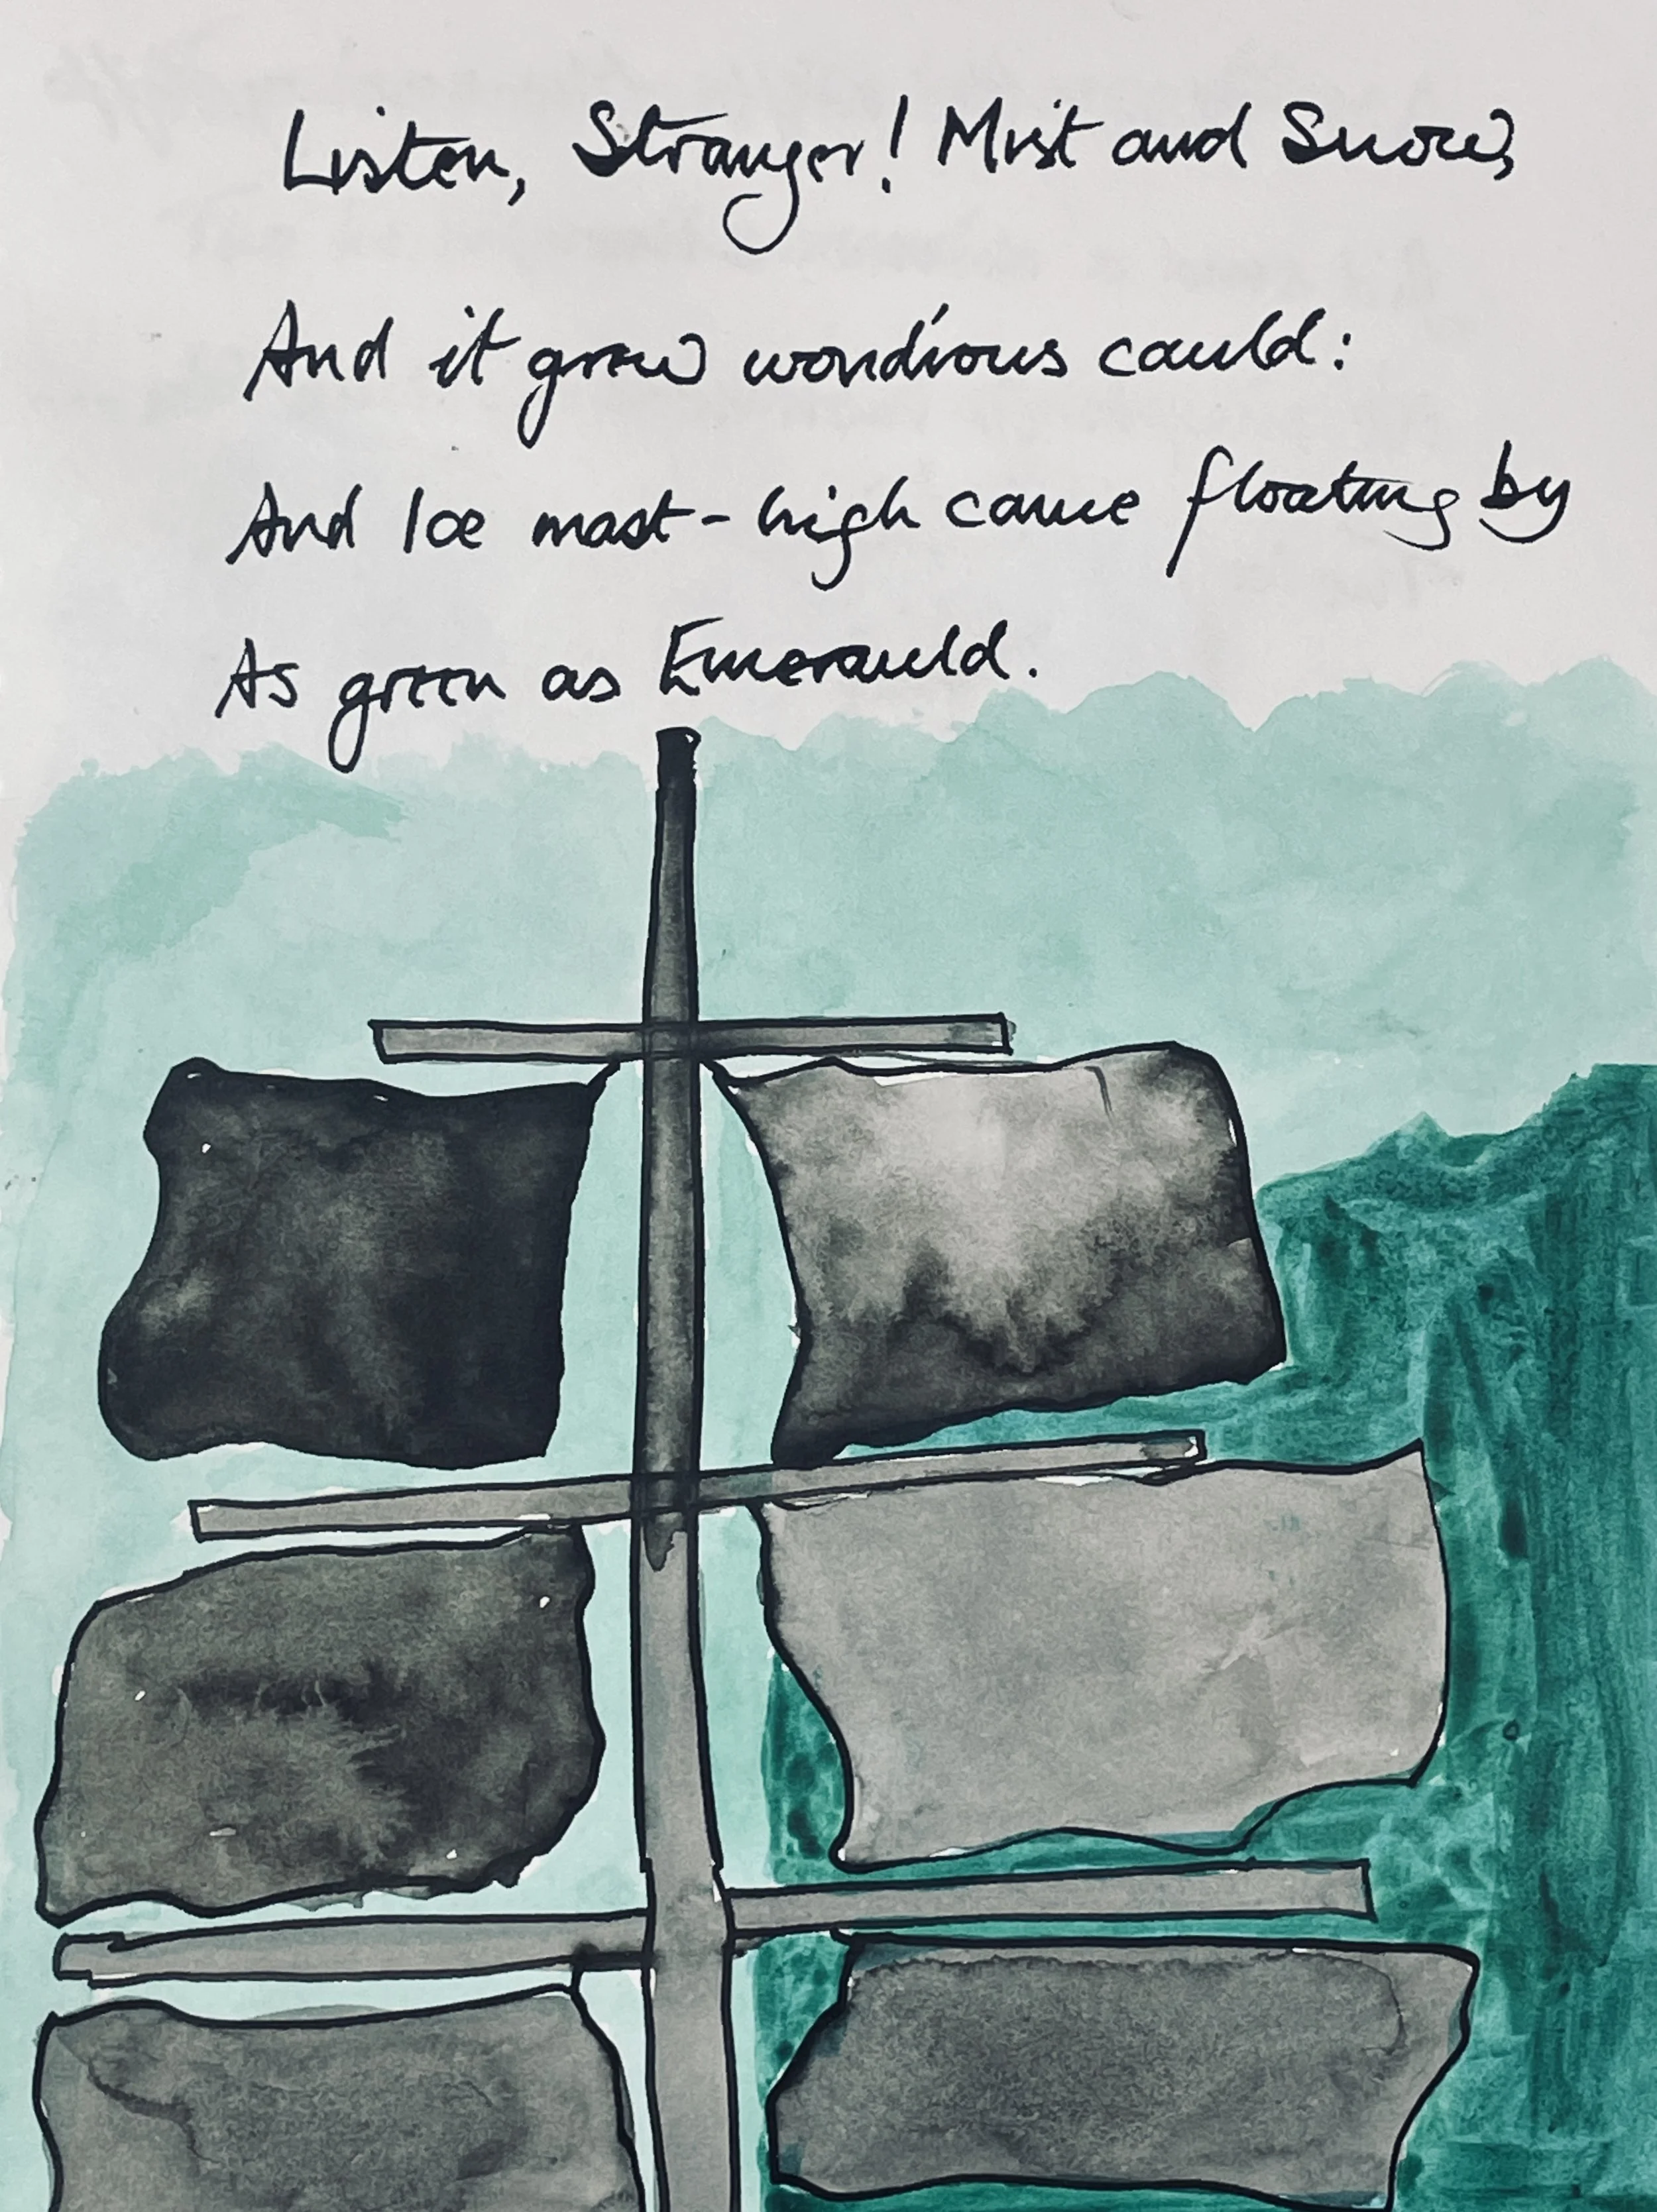 Listen, Stranger! Mist and Snow,
And it grew wond'rous cauld:
And Ice mast-high came floating by
As green as Emerauld.